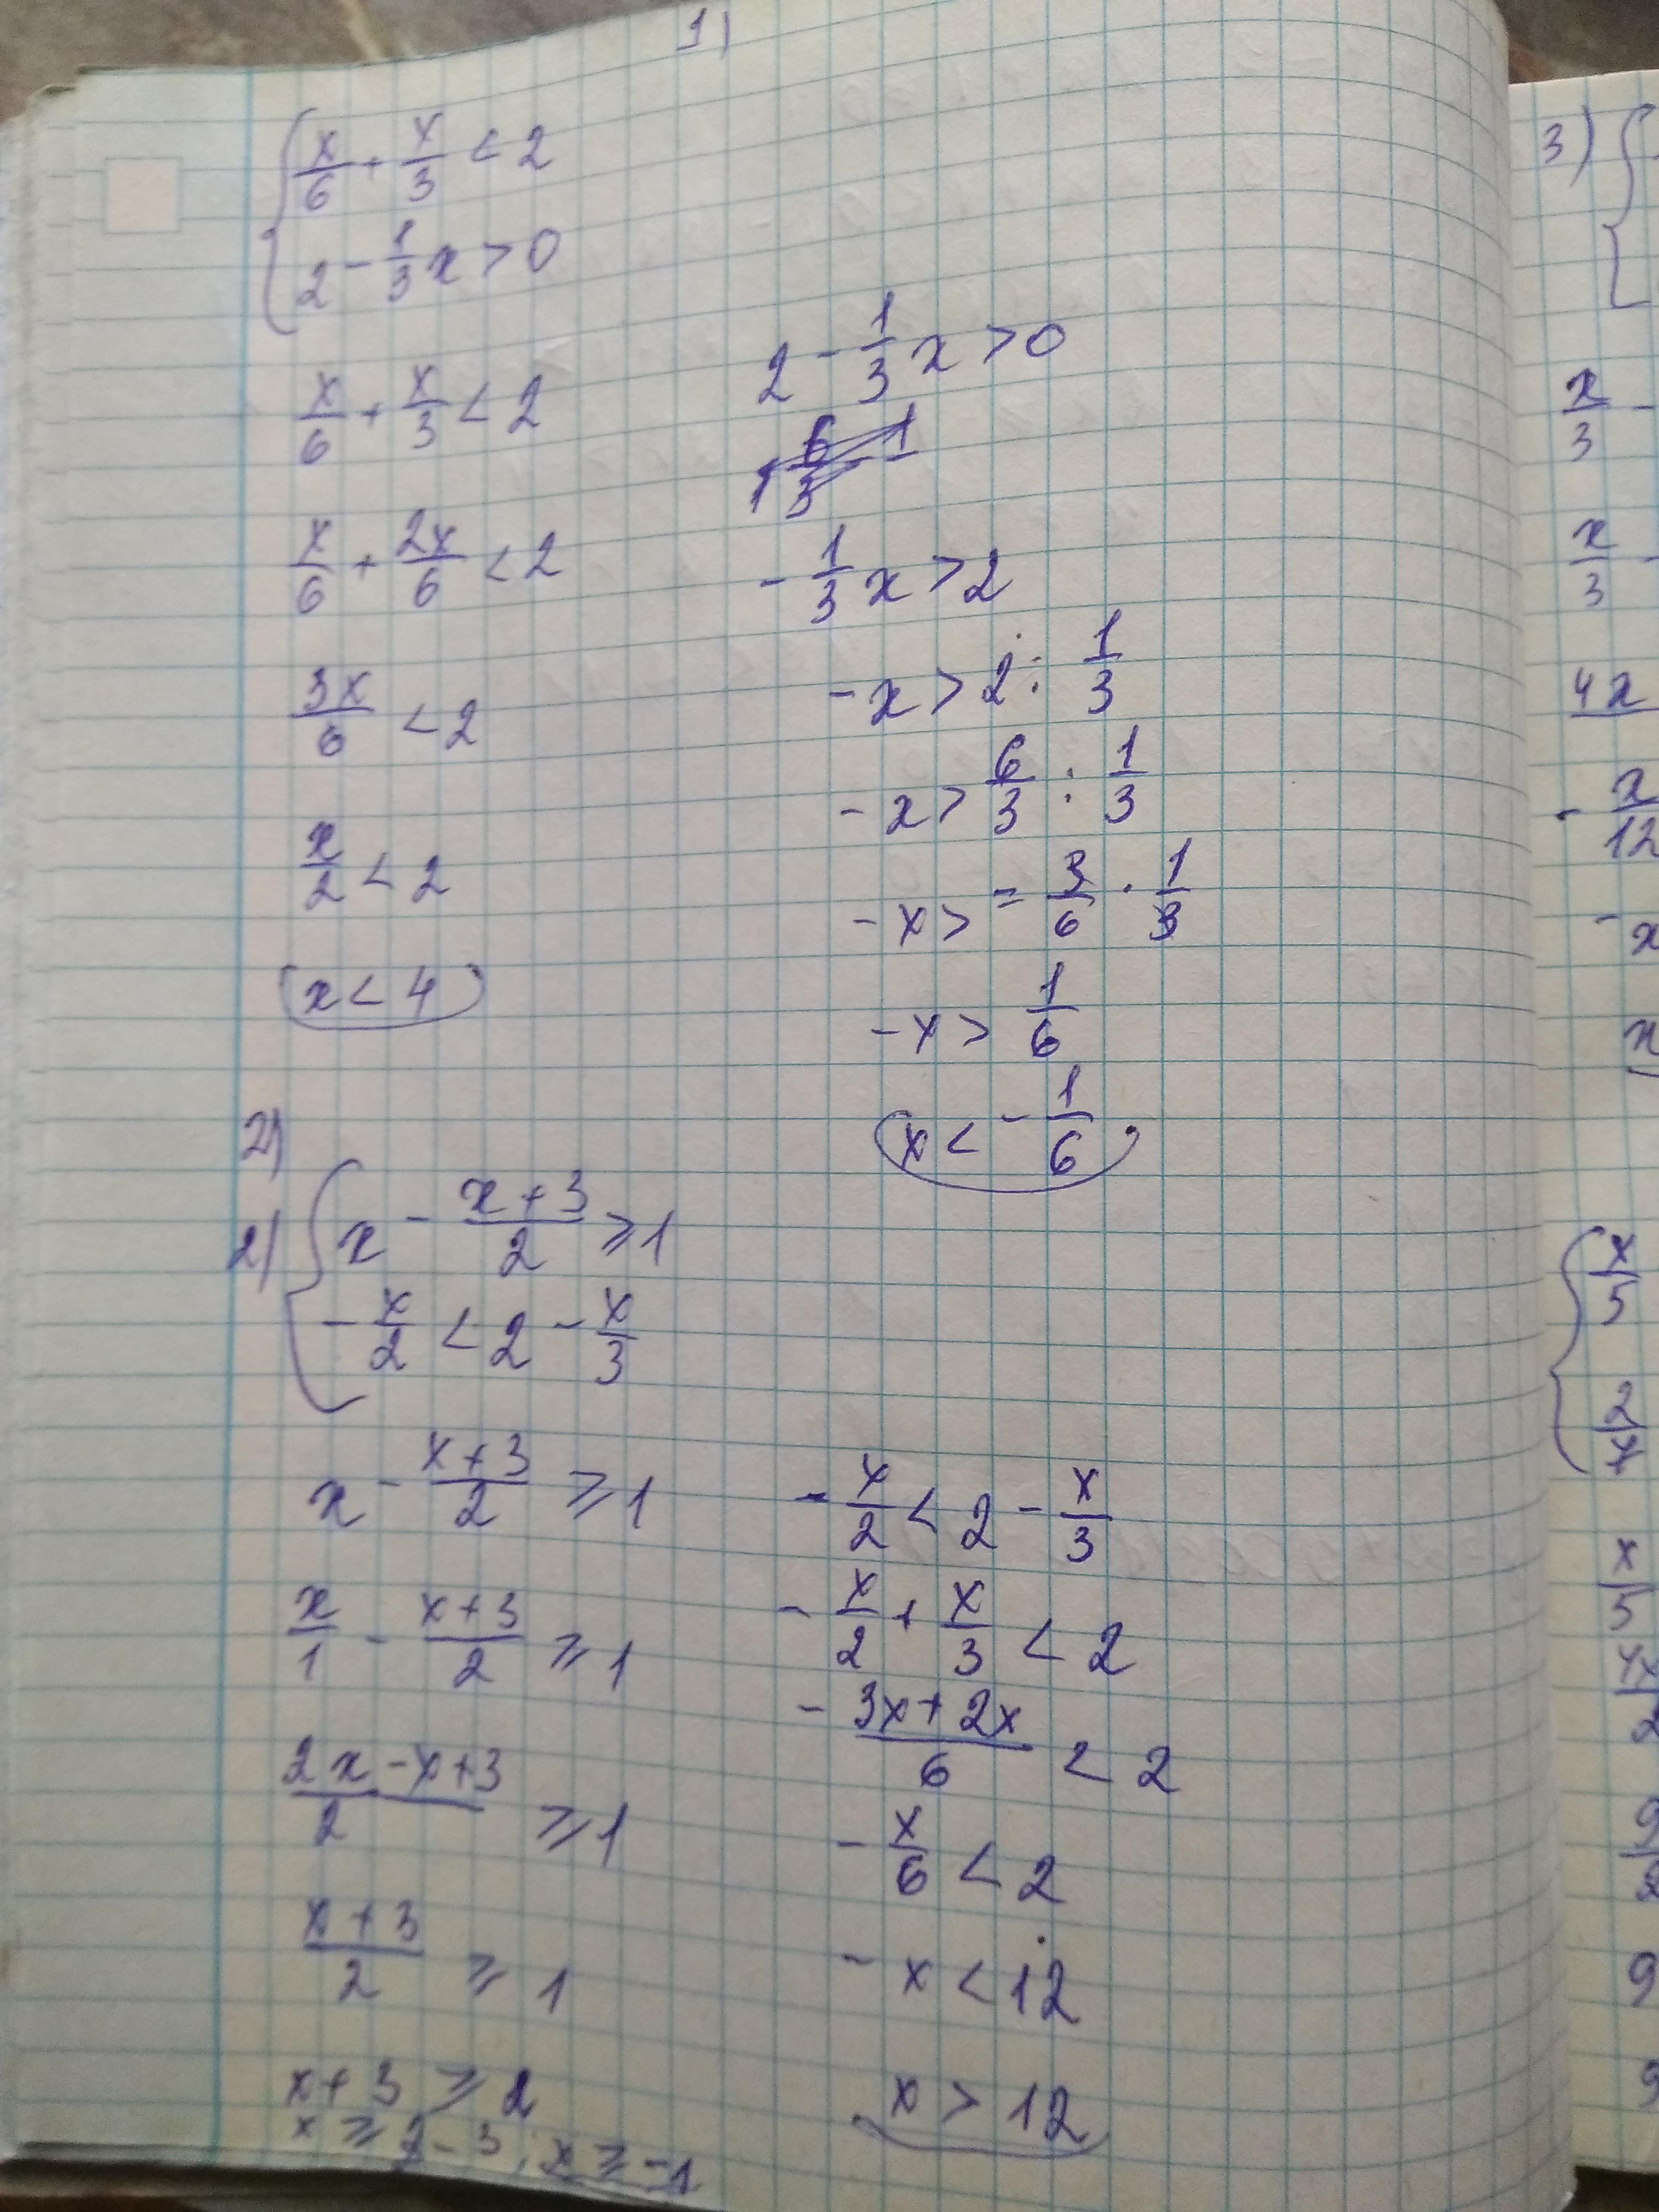 1)
x/6 + x/3 < 2
2 - 1/3 x > 0
x/6 + x/3 < 2
x/6 + 2x/6 < 2
3x/6 < 2
x/2 < 2
x < 4
2 - 1/3 x > 0
- 1/3 x > 2
- x > 2 : 1/3
- x > 6/3 : 1/3
- x > = 3/6 · 1/3
- x > 1/6
x < - 1/6
2)
2) x - (x+3)/2 ⩾ 1
- x/2 < 2 - x/3
x - (x+3)/2 ⩾ 1
x/1 - (x+3)/2 ⩾ 1
(2x - x+3)/2 ⩾ 1
(x+3)/2 ⩾ 1
x + 3 ⩾ 2
x ⩾ 2 - 3; x ⩾ -1
- x/2 < 2 - x/3
- x/2 + x/3 < 2
- (3x + 2x)/6 < 2
- x/6 < 2
- x < 12
x > 12
3)
x/3 -
x/3 -
4x
- x/12
- x
x
x/5
2/x
x/5
4x/2
9/2
9
9